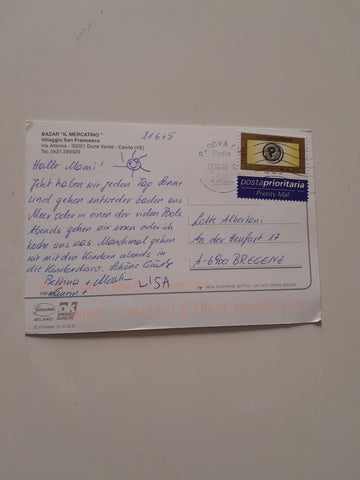 BAZAR "IL MERCATINO"
Villaggio San Francesco
Via Altanea - 30021 Duna Verde - Caorle (VE)
Tel. 0421.299429
21.6.05
DOVA
Poste
P
postaprioritaria
Priority Mail
Hallo Mami!
Jetzt haben wir jeden Tag Sonne
und gehen entweder baden ans
Meer oder in einen der vielen Pools.
Abends gehen wir essen oder ich
koche uns was. Manchmal gehen
wir mit den Kindern abends in
die Kinderdisco. Schöne Grüße
Bettina +
LISA
Lotte Albertani
An der Heufurt 17
A-6900 BREGENZ
NON SCRIVERE SOTTO - DO NOT WRITE BELOW
MILANO
© Printed in C.E.E.